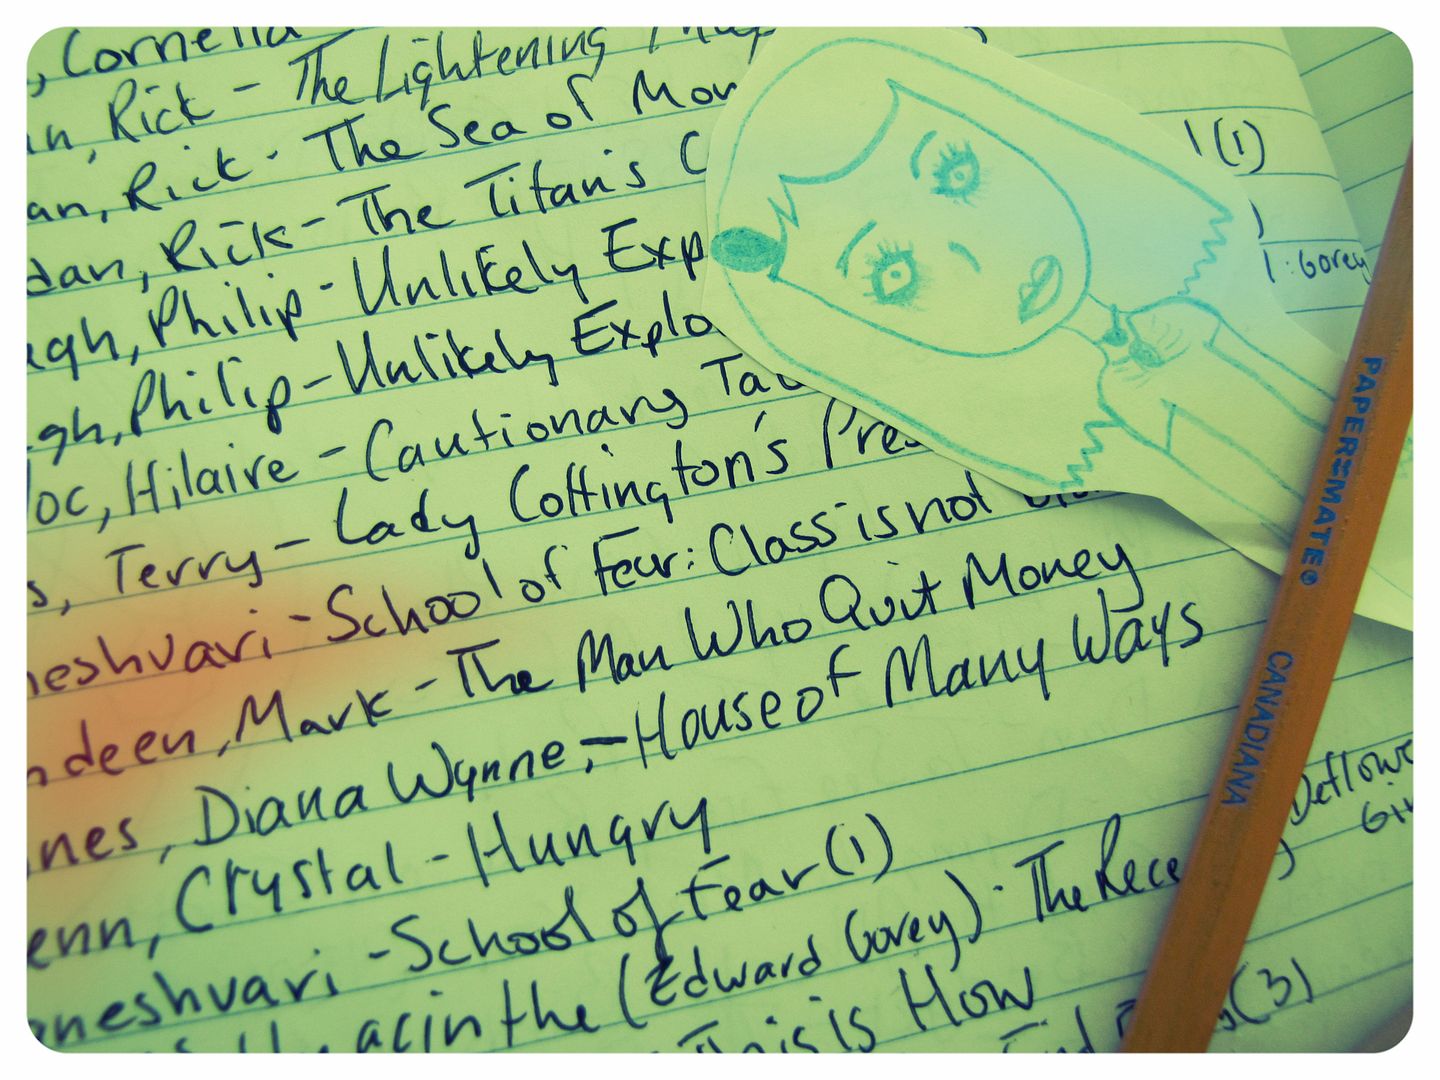 , Cornelia
n, Rick - The Lightening
an, Rick - The Sea of Mon
dan, Rick - The Titan's C
agh, Philip - Unlikely Exp
gh, Philip - Unlikely Explo
loc, Hilaire - Cautionary Ta
s, Terry - Lady Cottington's Pres
neshvari - School of Fear: Class is not
ndeen, Mark - The Man Who Quit Money
nes, Diana Wynne, - House of Many Ways
enn, Crystal - Hungry
neshvari - School of Fear (1)
acinthe (Edward Gorey) - The Rece
This is How
(3)
l (1)
1: Gorey
Deflowe
Gir
PAPER:MATE®
CANADIANA